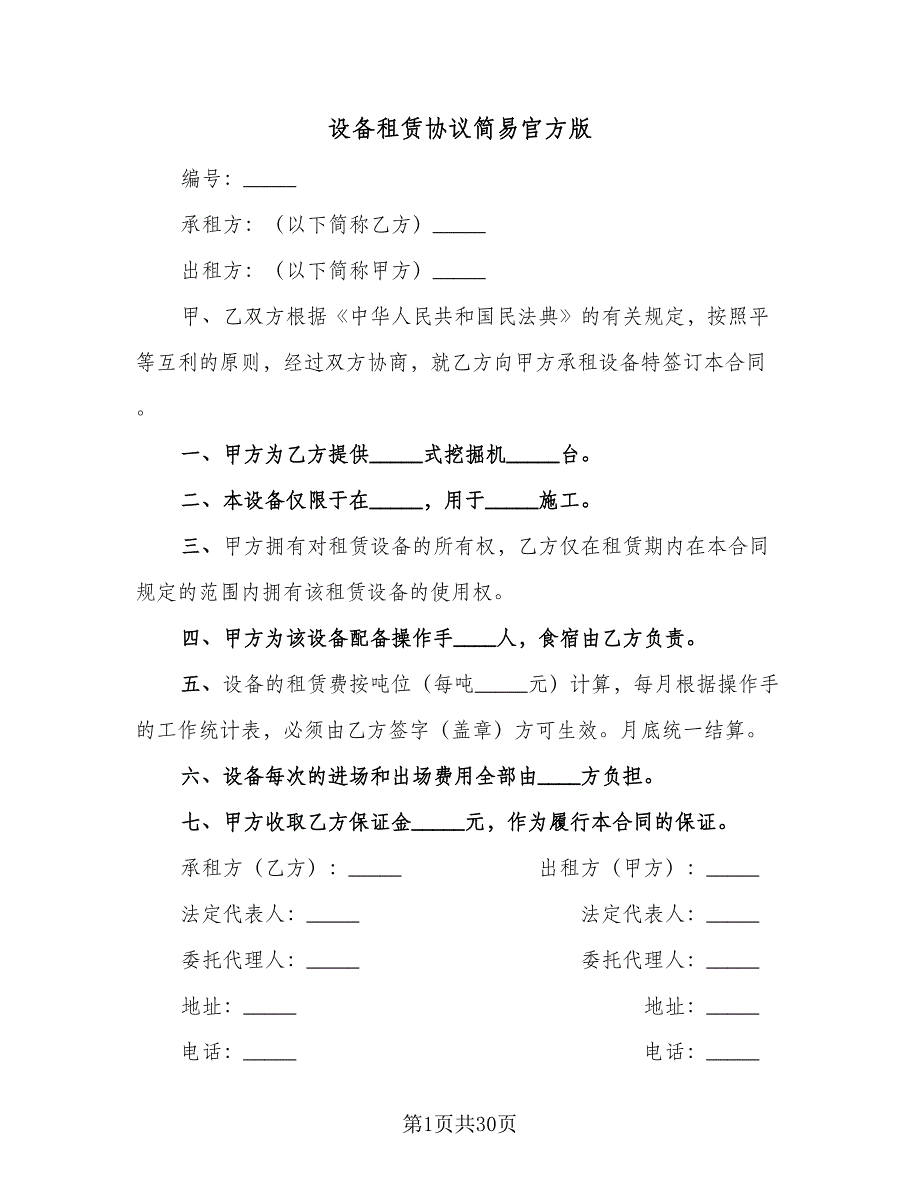 设备租赁协议简易官方版
编号：_____
承租方：（以下简称乙方）_____
出租方：（以下简称甲方）_____
甲、乙双方根据《中华人民共和国民法典》的有关规定，按照平
等互利的原则，经过双方协商，就乙方向甲方承租设备特签订本合同
。
一、甲方为乙方提供_____式挖掘机_____台。
二、本设备仅限于在_____，用于_____施工。
三、甲方拥有对租赁设备的所有权，乙方仅在租赁期内在本合同
规定的范围内拥有该租赁设备的使用权。
四、甲方为该设备配备操作手____人，食宿由乙方负责。
五、设备的租赁费按吨位（每吨_____元）计算，每月根据操作手
的工作统计表，必须由乙方签字（盖章）方可生效。月底统一结算。
六、设备每次的进场和出场费用全部由____方负担。
七、甲方收取乙方保证金_____元，作为履行本合同的保证。
承租方（乙方）：_____ 出租方（甲方）：_____
法定代表人：_____ 法定代表人：_____
委托代理人：_____ 委托代理人：_____
地址：_____ 地址：_____
电话：_____ 电话：_____
第1页共30页